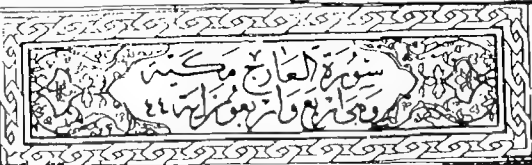 سُورَة المعَارج مَكيّة
وَهِيَ أربَع وَأربعُونَ آيَة ٤٤